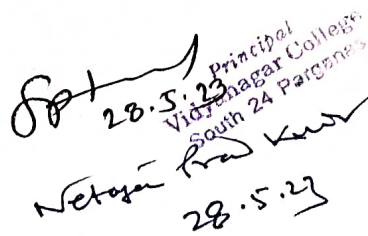 28.5.23
Principal
Vidyanagar College
South 24 Parganas
Netaji
28.5.23